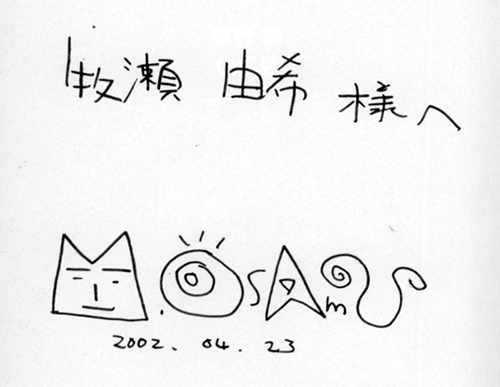 牧瀬 由希 様へ
M.OSAmU
2002. 04. 23